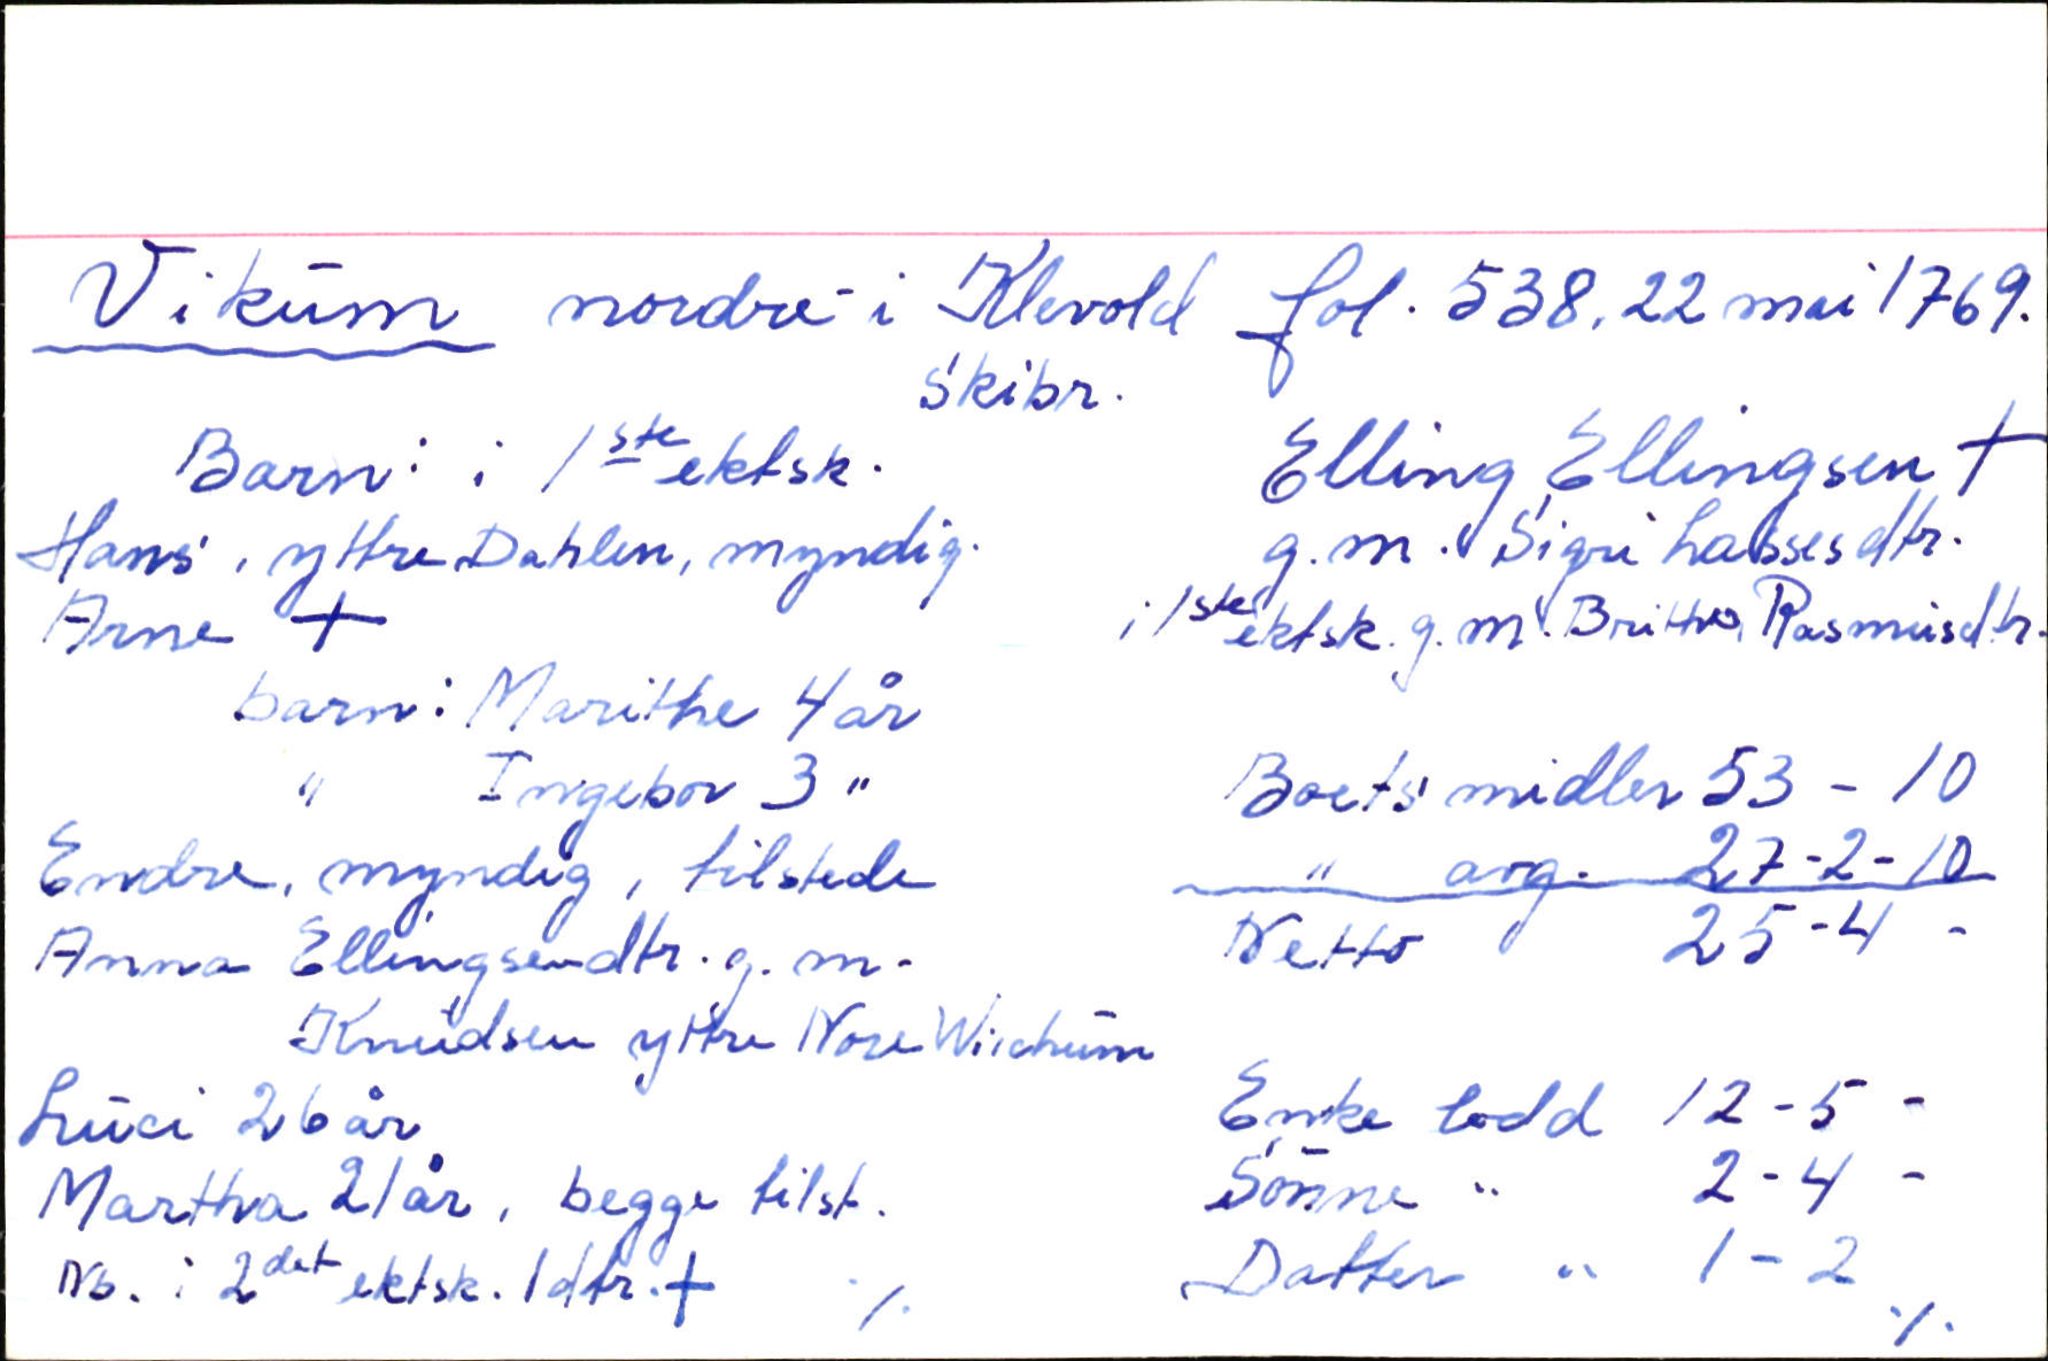 Vikum nordre i Klevold fol. 538, 22 mai 1769.
Skibr.
Barn: i 1ste ektsk.
Hans, yttre Dahlen, myndig.
Arne +
barn: Marithe 4 år
" Ingebor 3 "
Endre, myndig, tilstede
Anna Ellingsendtr. g. m.
Knudsen yttre Nore Wiichum
Luci 26 år
Martha 21 år, begge tilst.
Nb. i 2det ektsk. 1 dtr. + ./.
Elling Ellingsen +
g. m. Sigri Lassesdtr.
i 1ste ektsk. g. m. Britha Rasmusdtr.
Boets midler 53 - 10
" avg. 27-2-10
Netto 25-4 -
Enke lodd 12-5 -
Sönne " 2-4 -
Datter " 1-2
./.